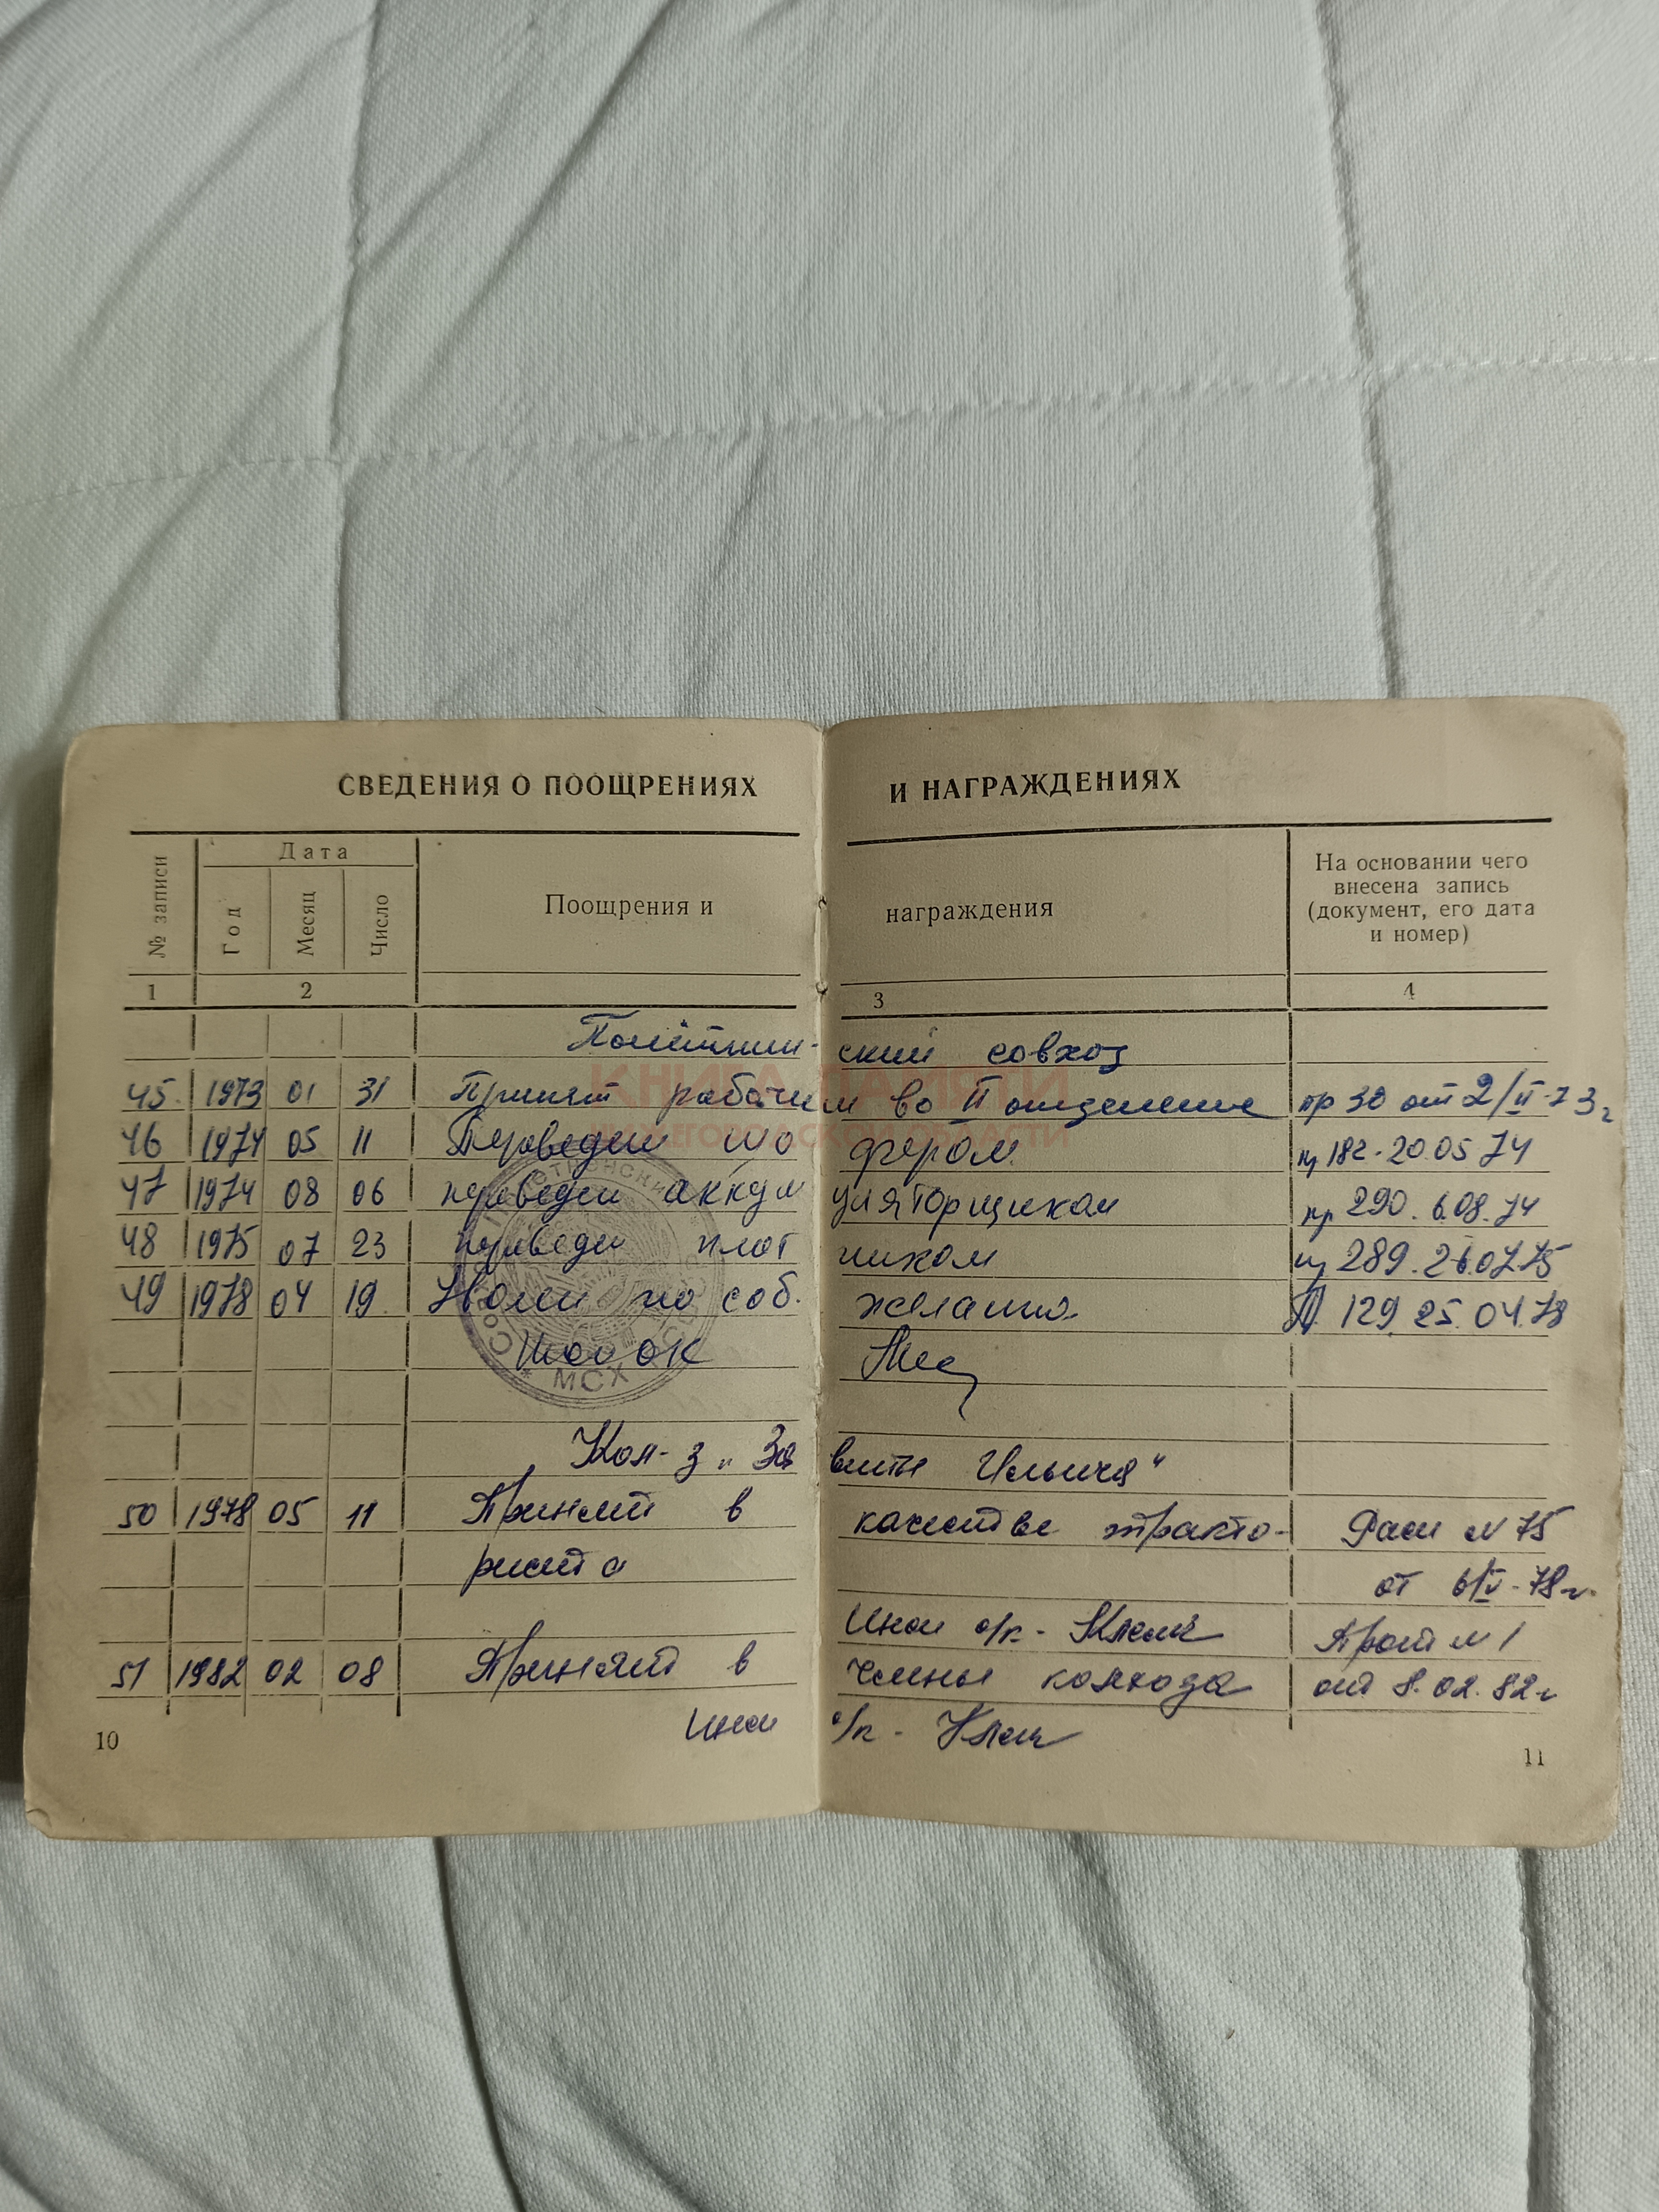 СВЕДЕНИЯ О ПООЩРЕНИЯХ И НАГРАЖДЕНИЯХ
№ записи
Дата
Год
Месяц
Число
Поощрения и награждения
На основании чего
внесена запись
(документ, его дата
и номер)
1 2 3 4
ский совхоз
45 1973 01 31 Принят рабочим во II отделение пр 30 от 2/II-73г
КНИГА ПАМЯТИ
46 1974 05 11 Переведен шофером пр 182. 20.05 74
47 1974 08 06 переведен аккумуляторщиком пр 290. 6.08.74
48 1975 07 23 переведен плотником пр 289. 26.07.75
49 1978 04 19 Уволен по соб. желанию П. 129. 25.04.78
ОК
МСХ
Кол-з „Заветы Ильича"
50 1978 05 11 Принят в качестве тракто- Расп N 75
риста от 6/V-78г.
Инсп о/к - Прот N 1
51 1982 02 08 Принят в члены колхоза от 8.02.82г
Инсп о/к -
10
11